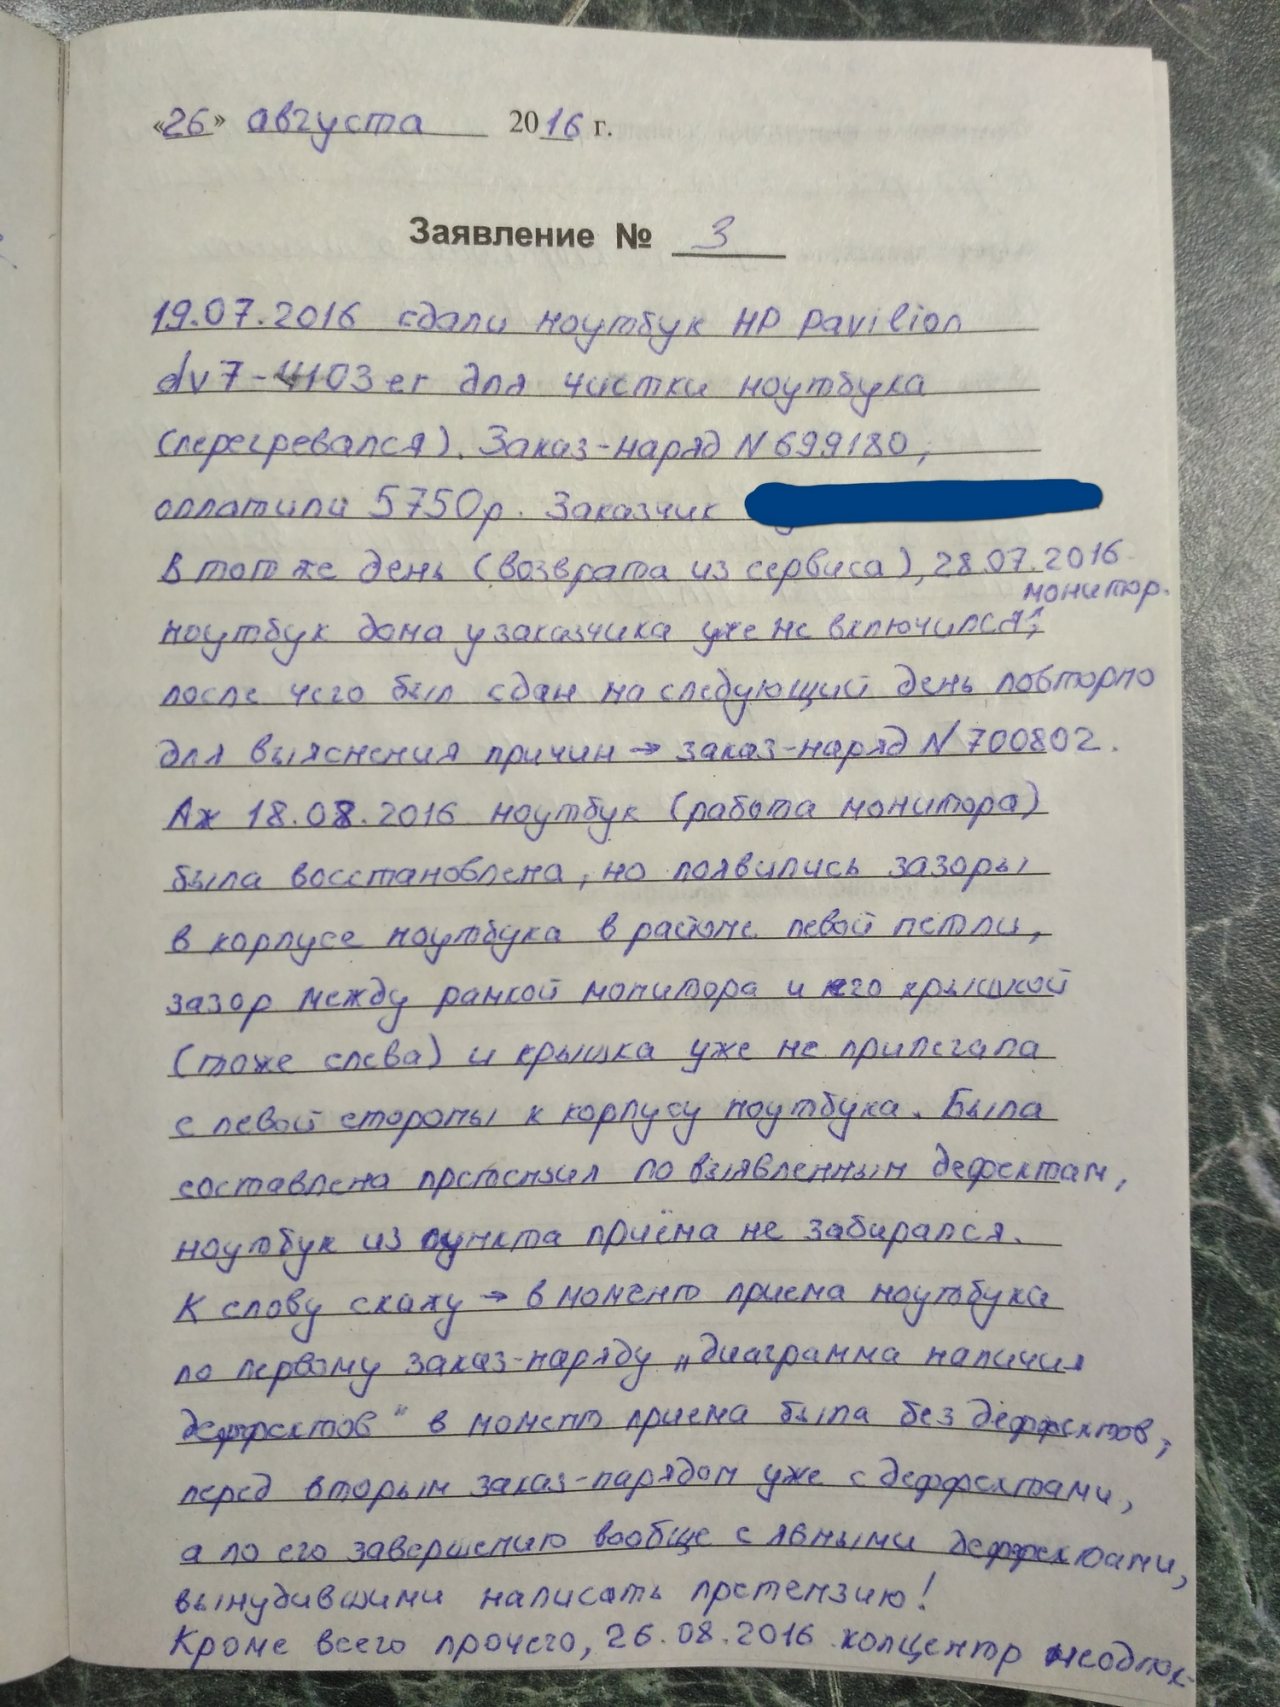 «26» августа 2016 г.
Заявление № 3
19.07.2016 сдали ноутбук HP pavilion
dv7-4103er для чистки ноутбука
(перегревался). Заказ-наряд N699180,
оплатили 5750р. Заказчик
В тот же день (возврата из сервиса), 28.07.2016
монитор.
ноутбук дома у заказчика уже не включился,
после чего был сдан на следующий день повторно
для выяснения причин → заказ-наряд N700802.
Аж 18.08.2016 ноутбук (работа монитора)
была восстановлена, но появились зазоры
в корпусе ноутбука в районе левой петли,
зазор между рамкой монитора и его крышкой
(тоже слева) и крышка уже не прилегала
с левой стороны к корпусу ноутбука. Была
составлена претензия по выявленным дефектам,
ноутбук из пункта приёма не забирался.
К слову скажу → в момент приема ноутбука
по первому заказ-наряду „диаграмма наличия
деффектов“ в момент приема была без деффектов,
перед вторым заказ-нарядом уже с деффектами,
а по его завершению вообще с явными деффектами,
вынудившими написать претензию!
Кроме всего прочего, 26.08.2016 колцентр неоднок-